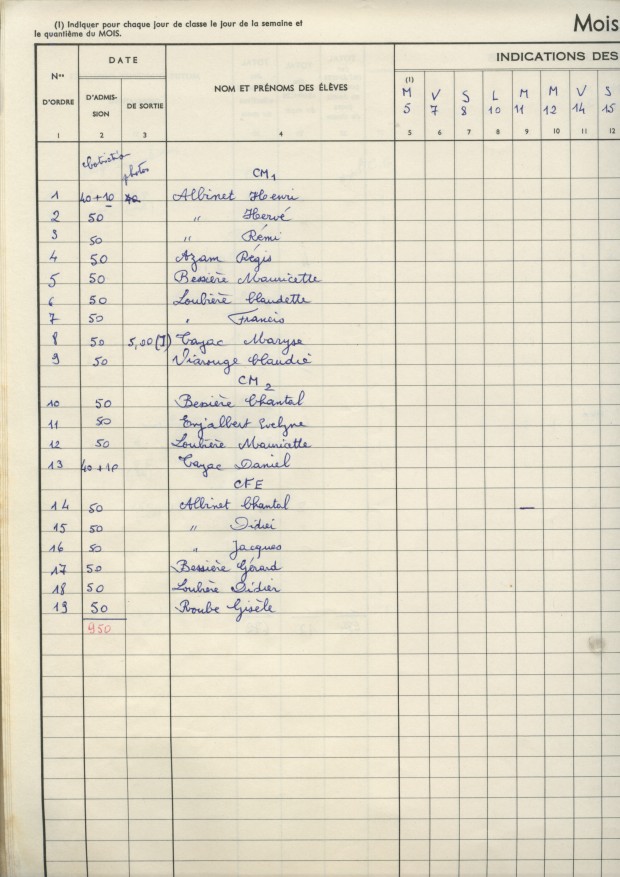 (1) Indiquer pour chaque jour de classe le jour de la semaine et
le quantième du MOIS.
Mois
DATE
INDICATIONS DES
Nos
D'ORDRE
D'ADMIS-
SION
DE SORTIE
NOM ET PRÉNOMS DES ÉLÈVES
(1)
M V S L M M V S
5 7 8 10 11 12 14 15
1 2 3 4 5 6 7 8 9 10 11 12
photos
CM1
1 40+10 Albinet Henri
2 50 " Hervé
3 50 " Rémi
4 50 Azam Régis
5 50 Bessière Mauricette
6 50 Loubière Claudette
7 50 " Francis
8 50 5,00 (I) Cazac Maryse
9 50 Viarouge Claudie
CM2
10 50 Bessière Chantal
11 50 Enjalbert Evelyne
12 50 Loubière
13 40+10 Cazac Daniel
CFE
14 50 Albinet Chantal —
15 50 " Didier
16 50 " Jacques
17 50 Bessière Gérard
18 50 Loubière Didier
19 50 Roube Gisèle
950